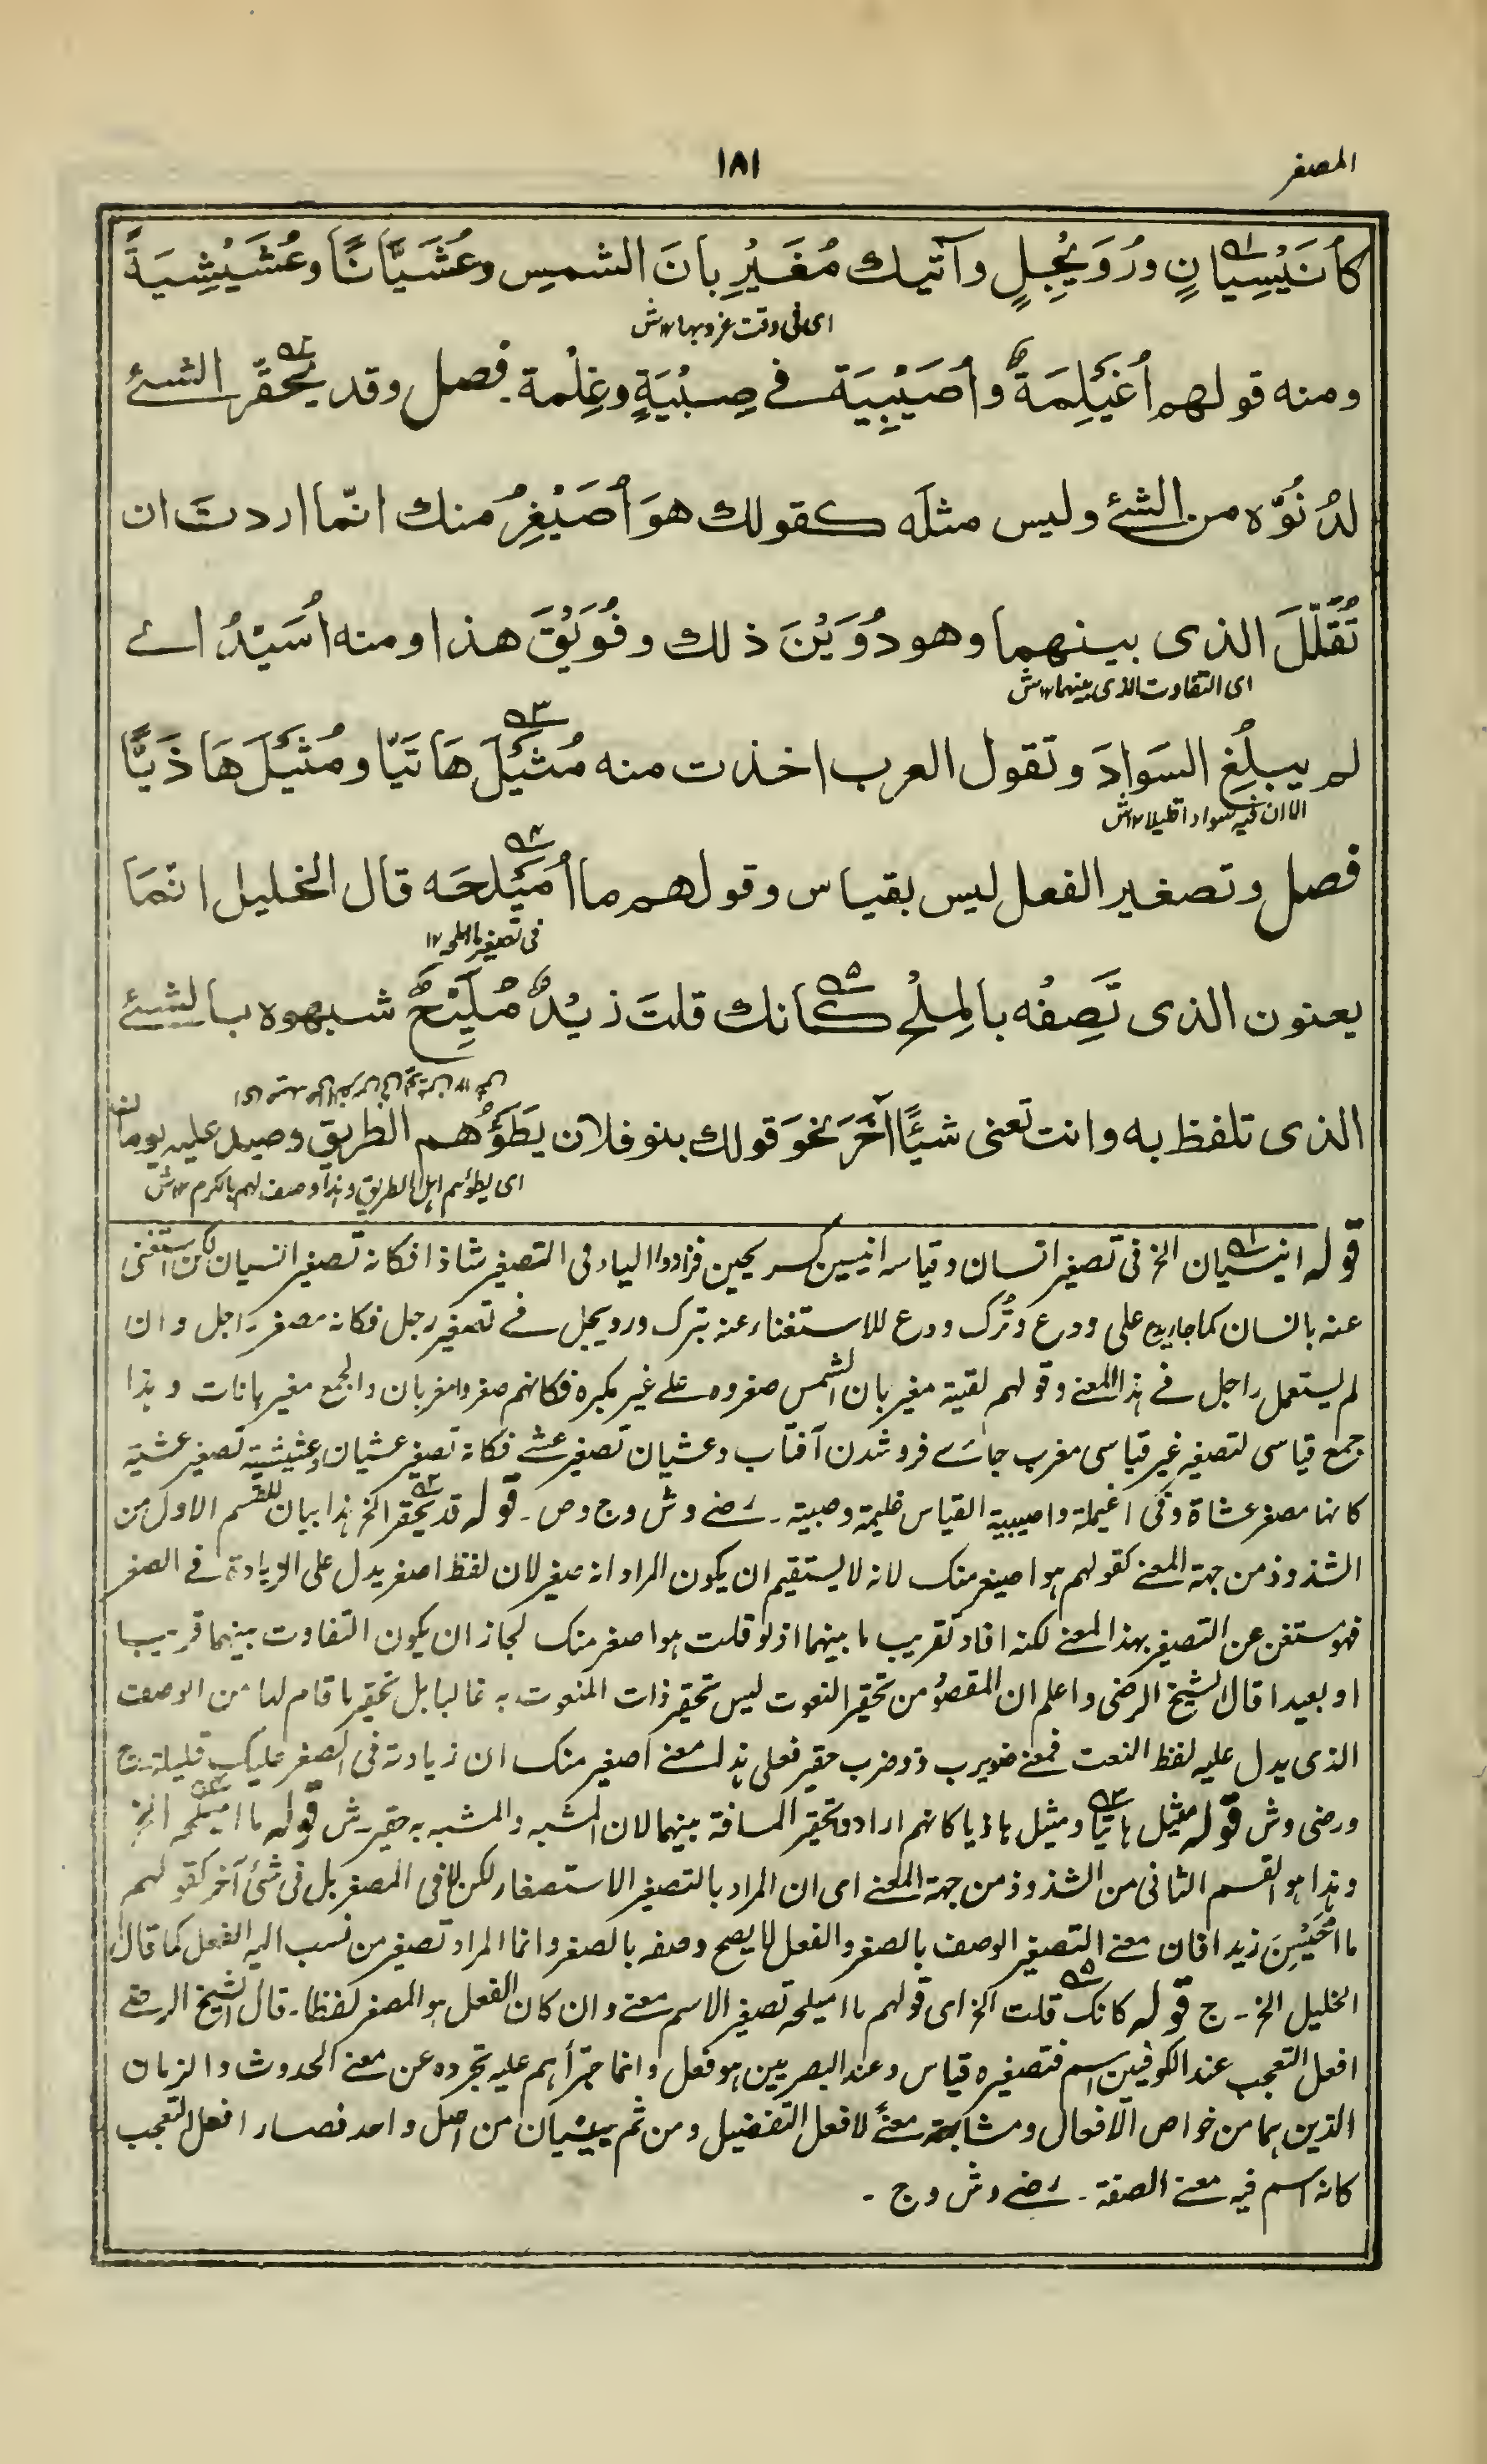 المصغر
١٨١
كأُنَيْسِيَانٍ ورُوَيْجِلٍ وآتيك مُغَيْرِبانَ الشمسِ وعُشَيَّانًا وعُشَيْشِيَةً
اى فى وقت غروبها ١٢ش
ومنه قولهم اُغَيْلِمَةٌ واُصَيْبِيَة فے صِبْيَةٍ وغِلْمة. فصل وقد يُحقّر الشئے
لدُنُوّه من الشئے وليس مثلَه كقولك هوَ اُصَيْغِرُ منك انّما اردتَ ان
تُقَلّلَ الذى بينهما وهو دُوَيْنَ ذلك وفُوَيْقَ هذا ومنه اُسَيْدُ اے
اى التفاوت الذى بينهما ١٢ش
لم يبلُغِ السَوادَ وتقول العرب اخذت منه مُثَيْلَ هَاتَيّا ومُثَيْلَ هَاذَيَّا
الا ان فيه سوادا قليلا ١٢ش
فصل وتصغير الفعل ليس بقياس وقولهم ما اُمَيْلِحَه قال الخليل انّمَا
فى تصغير ما املحه ١٢
يعنون الذى تَصِفُه بالمِلْحِ كانك قلتَ زيدٌ مُلَيِّحٌ شبهوه بالشئے
الذى تلفظ به وانت تعنى شيئًا آخَرَ نحوَ قولك بنو فلان يَطَؤُهم الطريق وصيد عليه يومان
اى يطؤهم اهل الطريق وهذا وصف لهم بالكرم ١٢ش
قوله انيسيان الخ فى تصغير انسان وقياسه انيسين كسريحين فزادوا الياء فى التصغير شاذا فكانه تصغير انسيان لكن استغنى
عنه بانسان كما جاء يدع على ودع وتُرك ودع للاستغناء عنه بترك ورويجل فے تصغير رجل فكانه مصغر راجل وان
لم يستعمل راجل فے هذا المعنے وقولهم لقيته مغيربان الشمس صغروه علے غير مكبره فكانهم صغروا مغربان والجمع مغيربانات وهذا
جمع قياسى لتصغير غير قياسى مغرب جائے فرو شدن آفتاب وعشيان تصغير عشے فكانه تصغير عشيان وعشيشية تصغير عشية
كانها مصغر عشاة وفى اغيلمة واصيبية القياس غليمة وصبية ۔ رضے وش وج وص ۔ قوله قد يحقر الخ هذا بيان للقسم الاول من
الشذوذ من جهة المعنے كقولهم هو اصيغر منك لانه لا يستقيم ان يكون المراد انه صغير لان لفظ اصغر يدل على الزيادة فے الصغر
فهو مستغن عن التصغير بهذا المعنے لكنه افاد تقريب ما بينهما اذ لو قلت هو اصغر منك لجاز ان يكون التفاوت بينهما قريبا
او بعيدا قال الشيخ الرضى واعلم ان المقصود من تحقير النعوت ليس تحقير ذات المنعوت به غالبا بل تحقير ما قام لها من الوصف
الذى يدل عليه لفظ النعت فمعنے ضويرب ذو ضرب حقير فعلى هذا معنے اصيغر منك ان زيادته فى الصغر عليك قليلة ۔ ج
ورضى وش قوله مثيل هاتيا ومثيل هاذيا كانهم ارادوا تحقير المسافة بينهما لان المشبه والمشبه به حقير ۔ ش قوله ما اميلحه الخ
وهذا هو القسم الثانى من الشذوذ من جهة المعنے اى ان المراد بالتصغير الاستصغار لكن لا فى المصغر بل فى شئ آخر كقولهم
ما اُحَيْسِنَ زيدا فان معنے التصغير الوصف بالصغر والفعل لا يصح وصفه بالصغر وانما المراد تصغير من نسب اليه الفعل كما قال
الخليل الخ ۔ ج قوله كانك قلت الخ اى قولهم ما اميلحه تصغير الاسم معنے وان كان الفعل هو المصغر لفظا ۔ قال الشيخ الرضے
افعل التعجب عند الكوفيين اسم فتصغيره قياس وعند البصريين هو فعل وانما جرّأهم عليه تجرده عن معنے الحدوث والزمان
الذين هما من خواص الافعال ومشابهته معنًے لافعل التفضيل ومن ثم يبنيان من اصل واحد فصار افعل التعجب
كانه اسم فيه معنے الصفة ۔ رضے وش وج ۔